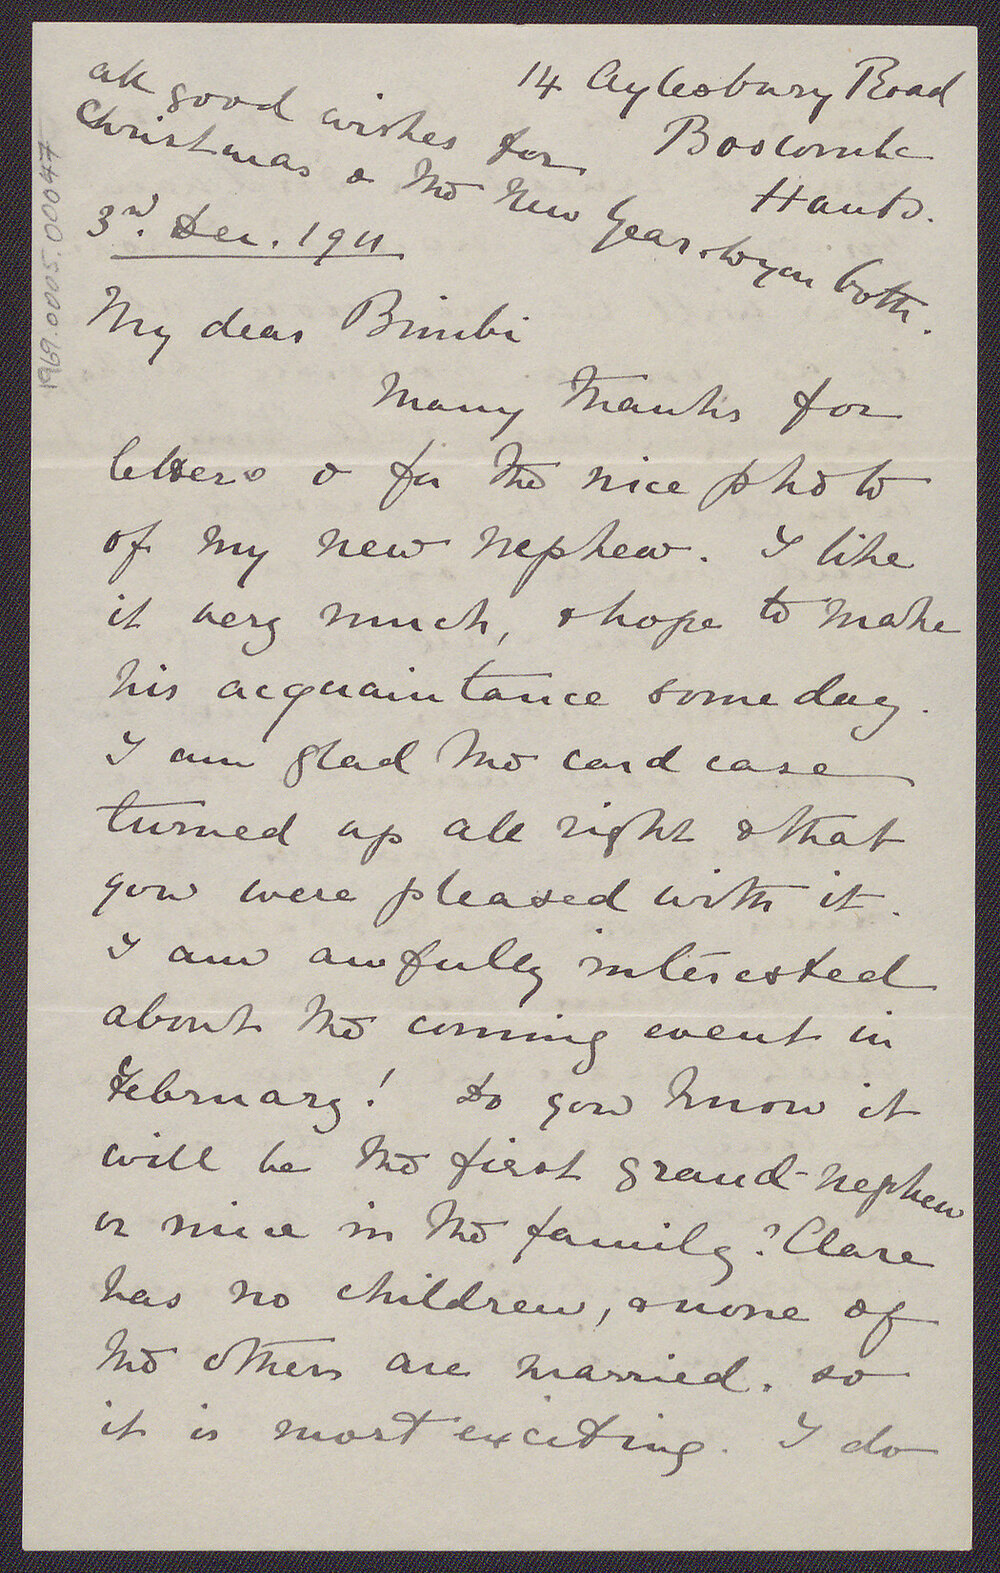 14 Aylesbury Road
Boscombe
Hants.
all good wishes for
Christmas & the New Year to you both.
3rd. Dec. 1911
My dear Bimbi
Many thanks for
letters & for the nice photo
of my new nephew. I like
it very much, & hope to make
his acquaintance some day.
I am glad the card case
turned up all right & that
you were pleased with it.
I am awfully interested
about the coming event in
February! Do you know it
will be the first grand-nephew
or niece in the family? Clare
has no children, & none of
the others are married. so
it is most exciting. I do
1969.0005.00047